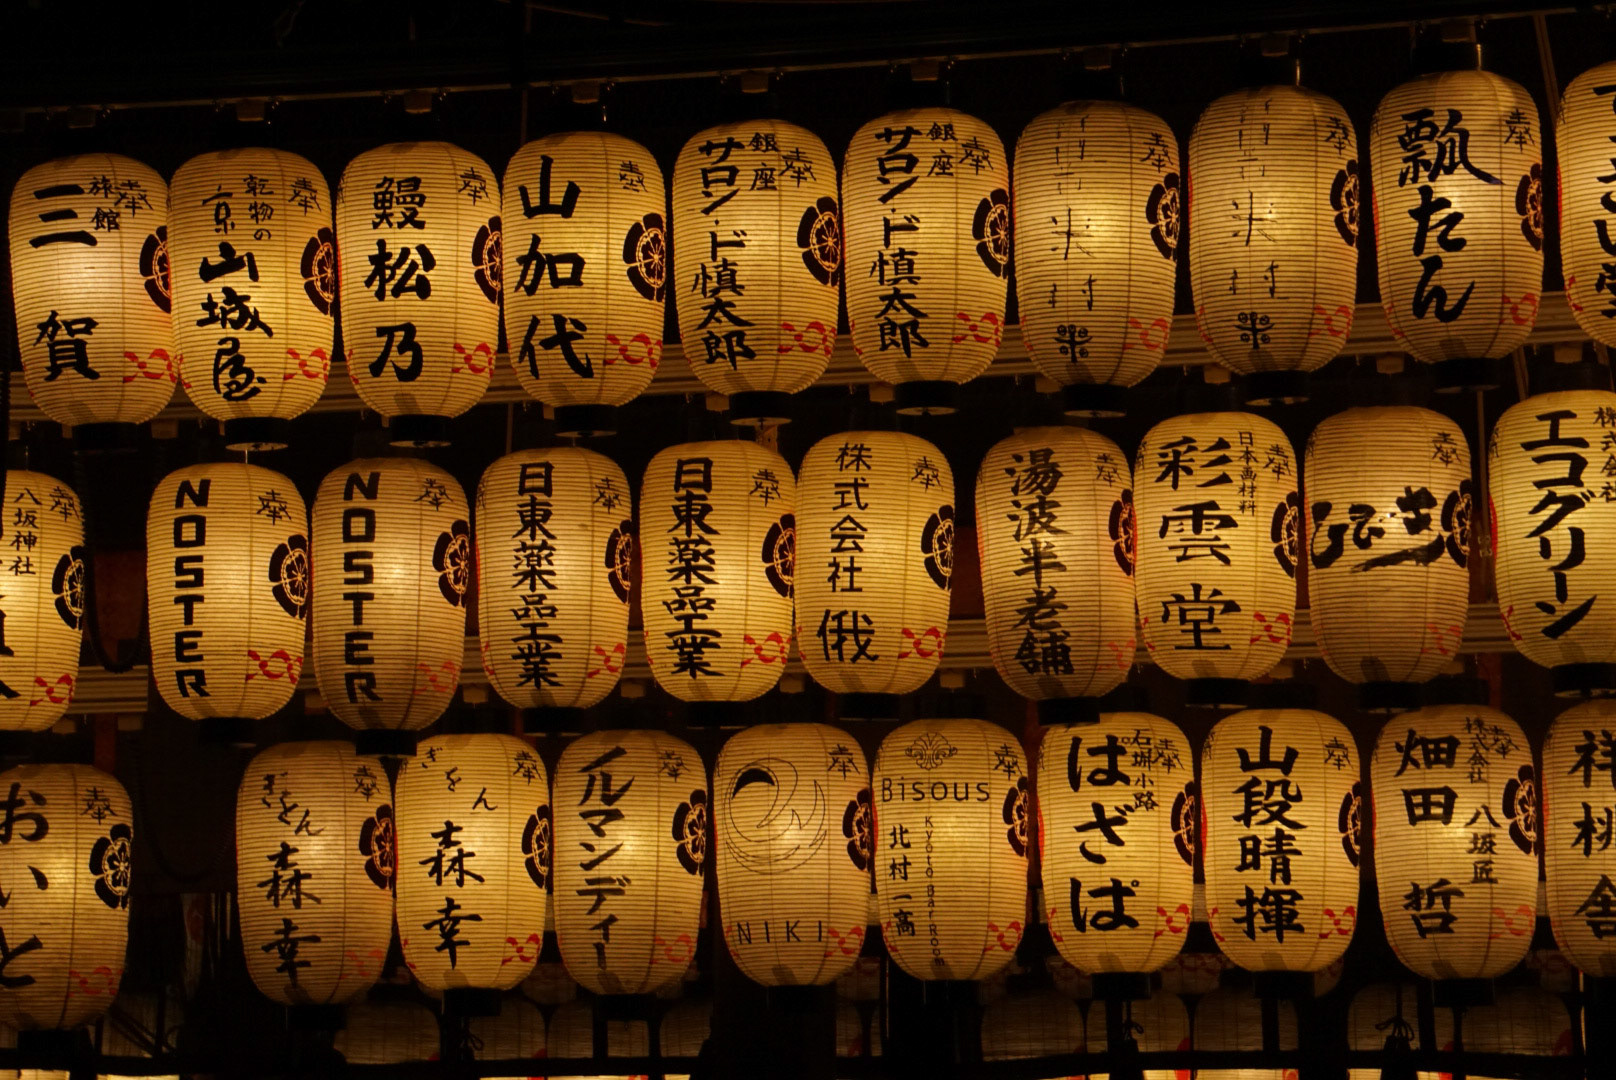 奉
旅館
三賀
奉
乾物の
京山城屋
奉
鰻松乃
奉
山加代
奉
銀座
サロン・ド慎太郎
奉
銀座
サロン・ド慎太郎
奉
奉
奉
瓢たん
奉
八坂神社
奉
NOSTER
奉
NOSTER
奉
日東薬品工業
奉
日東薬品工業
奉
株式会社 俄
奉
湯波半老舗
奉
日本画材料
彩雲堂
奉
株式会社
エコグリーン
奉
おいと
奉
ぎをん
森幸
奉
ぎをん
森幸
奉
イルマンディー
奉
NIKI
奉
Bisous
Kyoto Bar room
北村一高
奉
石塀小路
ぱざぱ
奉
山段晴揮
奉
株式会社
八坂匠
畑田哲
祥桃舎